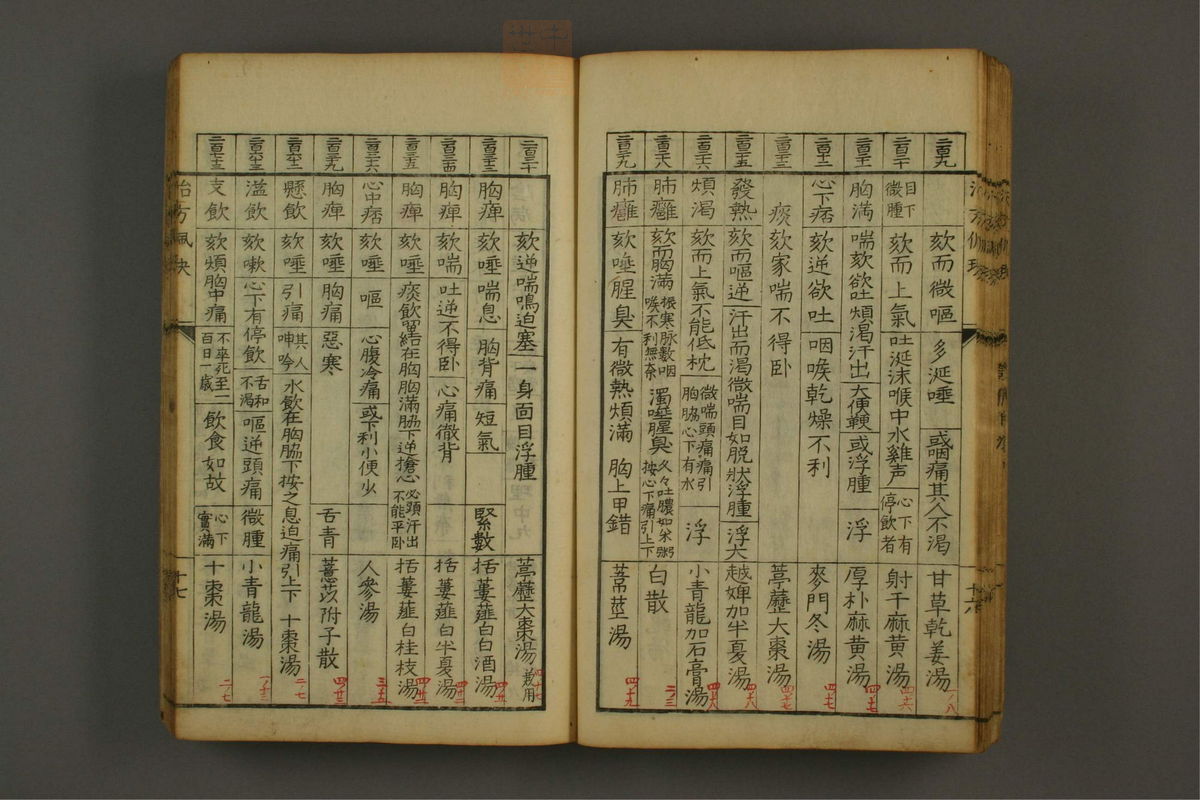 二百十九 欬而微嘔 多涎唾 或咽痛其人不渴 甘草乾姜湯
二百二十 目下微腫 欬而上氣 吐涎沫喉中水雞声 心下有停飲者 射干麻黄湯 四ノ六
胸満 喘欬欲吐 煩渴汗出 大便鞕 或浮腫 浮 厚朴麻黄湯 四ノ七
心下痞 欬逆欲吐 咽喉乾燥不利 麥門冬湯 四ノ七
痰欬家喘不得卧 葶藶大棗湯 四ノ七
發熱 欬而嘔逆 汗出而渴微喘目如脱狀浮腫 浮大 越婢加半夏湯 四ノ八
二百二十六 煩渴 欬而上氣不能低枕 微喘頭痛痛引胸脇心下有水 浮 小青龍加石膏湯 四ノ八
二百二十八 肺癰 欬而胸満 振寒脉數咽喉不利無奈 濁唾腥臭 久々吐膿如米粥按心下痛引上下 白散 二ノ三
二百二十九 肺癰 欬唾腥臭 有微熱煩滿 胸上甲錯 葦莖湯 四ノ九
治方
十六
治方
十七
二百三十 欬逆喘鳴迫塞 一身面目浮腫 葶藶大棗湯 兼用 四ノ七
二百三十三 胸痺 欬唾 喘息 胸背痛 短氣 緊數 括蔞薤白白酒湯
二百三十四 胸痺 欬喘 吐逆不得卧 心痛徹背 括蔞薤白半夏湯
二百三十五 胸痺 欬唾 痰飲畱結在胸胸滿脇下逆搶心 必頭汗出不能平卧 括蔞薤白桂枝湯
心中痞 欬唾 嘔 心腹冷痛 或下利小便少 人參湯 三ノ五
胸痺 欬唾 胸痛 惡寒 舌青 薏苡附子散
懸飲 欬唾 引痛 其人呻吟 水飲在胸脇下按之息迫痛引上下 十棗湯 二ノ七
溢飲 欬嗽 心下有停飲 舌和不渴 嘔逆頭痛 微腫 小青龍湯
支飲 欬煩胸中痛 不卒死至一百日一歳 飲食如故 心下實滿 十棗湯 二ノ七